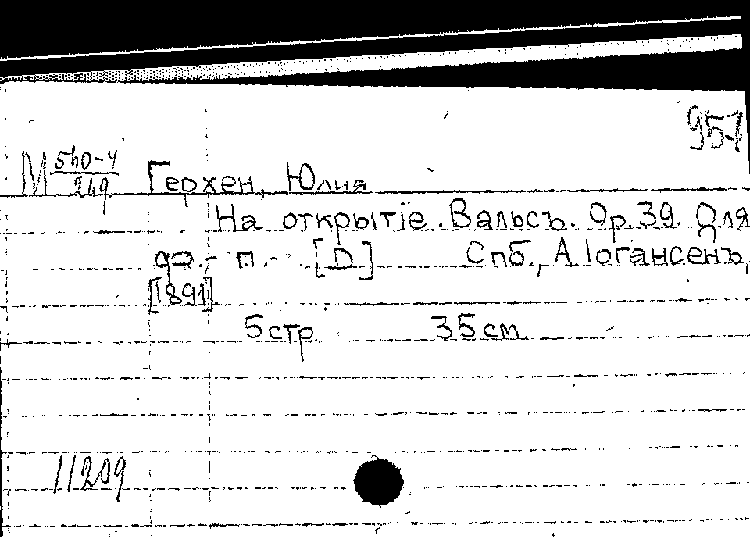 957
М 540-4 Герхен, Юлия
249
На открытіе. Вальсъ. Ор. 39. Для
фо.-п. [D] Спб., А. Іогансенъ,
[1891].
5 стр 35 см
11209